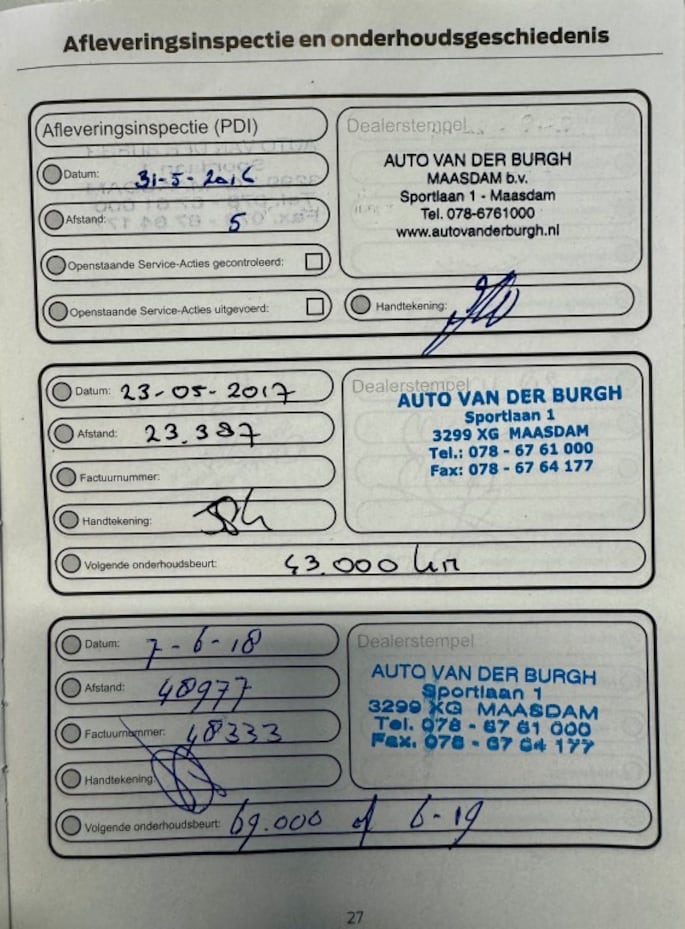 Afleveringsinspectie en onderhoudsgeschiedenis
Afleveringsinspectie (PDI)
Datum: 31-5-2016
Afstand: 5
Openstaande Service-Acties gecontroleerd:
Openstaande Service-Acties uitgevoerd:
Dealerstempel
AUTO VAN DER BURGH
MAASDAM b.v.
Sportlaan 1 - Maasdam
Tel. 078-6761000
www.autovanderburgh.nl
Handtekening:
Datum: 23-05-2017
Afstand: 23.387
Factuurnummer:
Handtekening:
Volgende onderhoudsbeurt: 43.000 km
Dealerstempel
AUTO VAN DER BURGH
Sportlaan 1
3299 XG MAASDAM
Tel.: 078 - 67 61 000
Fax: 078 - 67 64 177
Datum: 7-6-18
Afstand: 48977
Factuurnummer: 48333
Handtekening:
Volgende onderhoudsbeurt: 69.000 of 6-19
Dealerstempel
AUTO VAN DER BURGH
Sportlaan 1
3299 XG MAASDAM
Tel. 078 - 67 61 000
Fax. 078 - 67 64 177
27